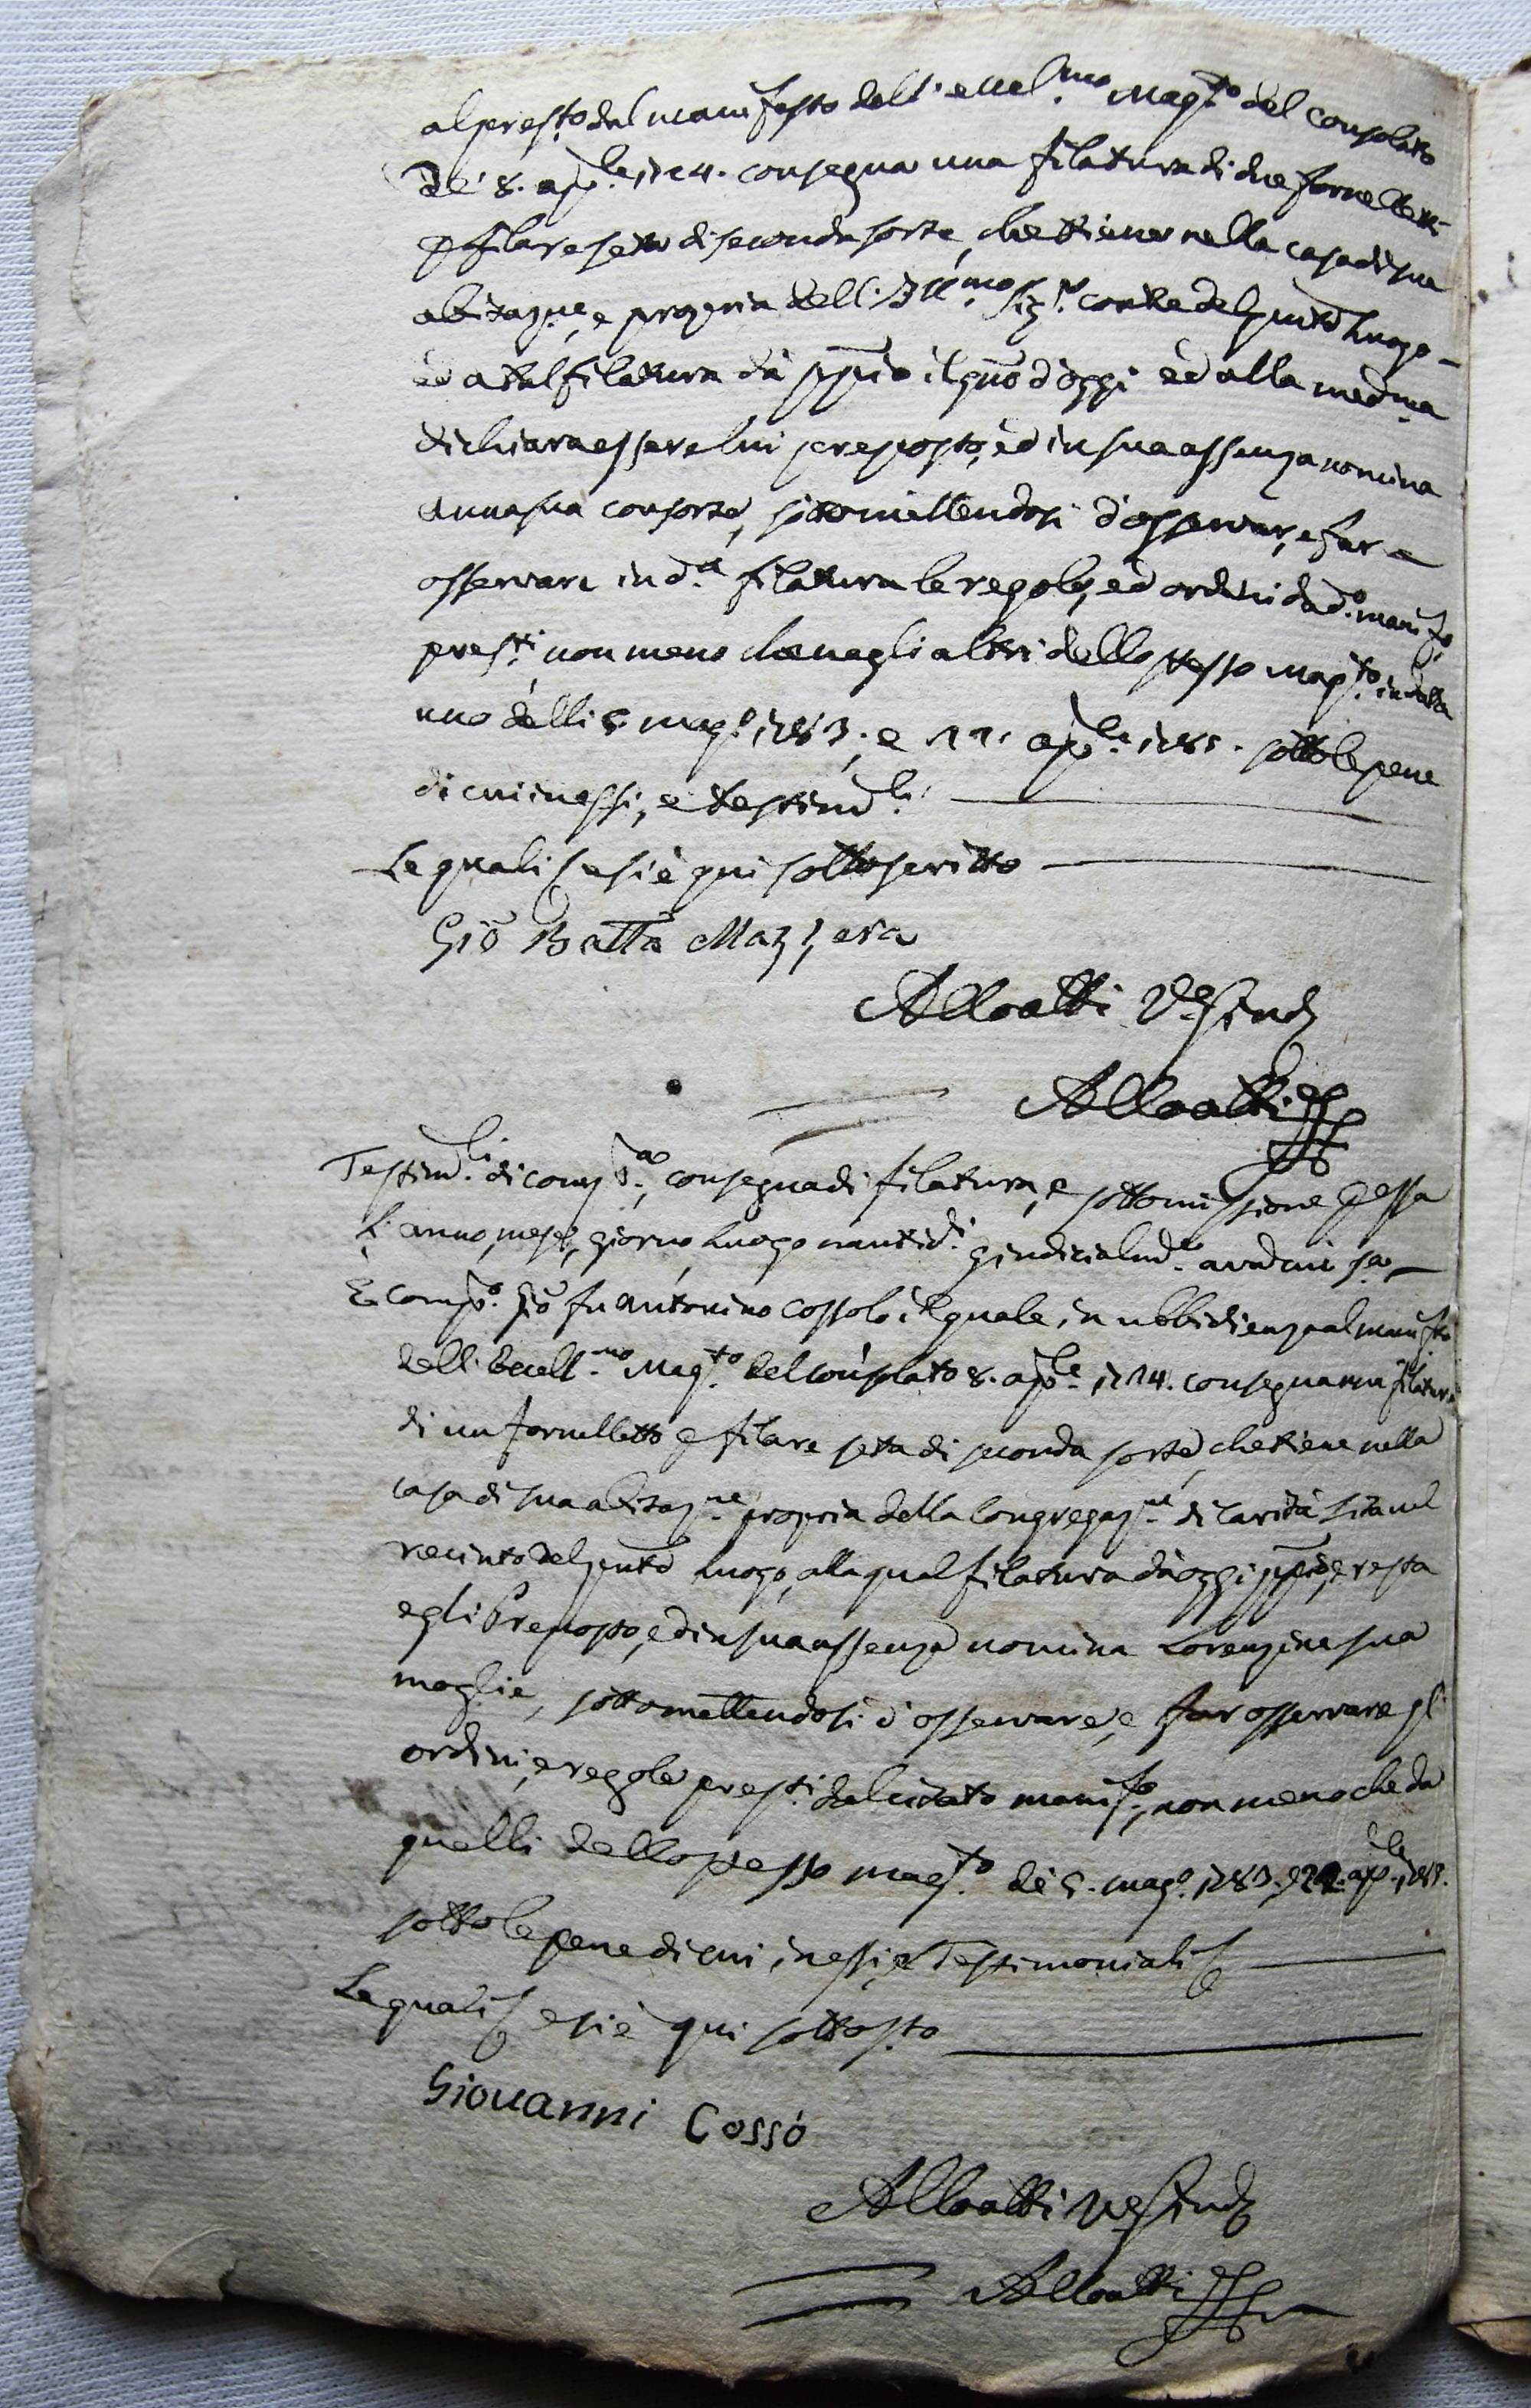 al prest.o dal manifesto dell'eccel.mo Mag.to del consolato
de' 8. ap.le 1724. consegna una filatura di due fornelletti
p filare seta di seconda sorte, che tiene nella casa di sua
abitaz.ne, e propria dell'Ill.mo Sig.r conte del pnte Luogo
ed a tal filatura dà ppio il gno d'oggi ed alla med.ma
dichiara esser lui preposto, ed in sua assenza nomina
Anna sua consorte, sottomittendosi d'osservar, e far
osservare in d.a filatura le regole, ed ordini da d.o manif.o
prest.i non meno che negli altri dello stesso mag.to in data
uno delli 5 mag.o 1783. e 11. ap.le 1785. sotto le pene
di cui in essi, e testim.li
Le quali se si è qui sottoscritto
Gio Batta Mazzera
Alloatti
Alloatti
Testim.li di comp.a, consegna di filatura, e sottomissione p essa
L'anno, mese, giorno, luogo nanti d.i giudicialm.e avanti
È comp.o Gio fu Antonino Cossolo il quale in ubbidienza al manif.to
dell'Eccell.mo Mag.to del consolato 8. ap.le 1724. consegna una filatura
di un fornelletto p filare seta di seconda sorte, che tiene nella
casa di sua abitaz.ne propria della Congregaz.ne di Carità sita nel
recinto del pnte Luogo, alla qual filatura dà oggi ppio, e resta
egli Preposto, ed in sua assenza nomina Lorenzina sua
moglie, sottomettendosi d'osservare, e far osservare gl'
ordini, e regole prest.i dal citato manif.o, non meno che da
quelli dello stesso mag.to de' 5. mag.o 1783. ap.le 1785.
sotto le pene di cui in essi, e Testimoniali
Le quali e si è qui sottos.to
Giouanni Cossó
Alloatti
Alloatti